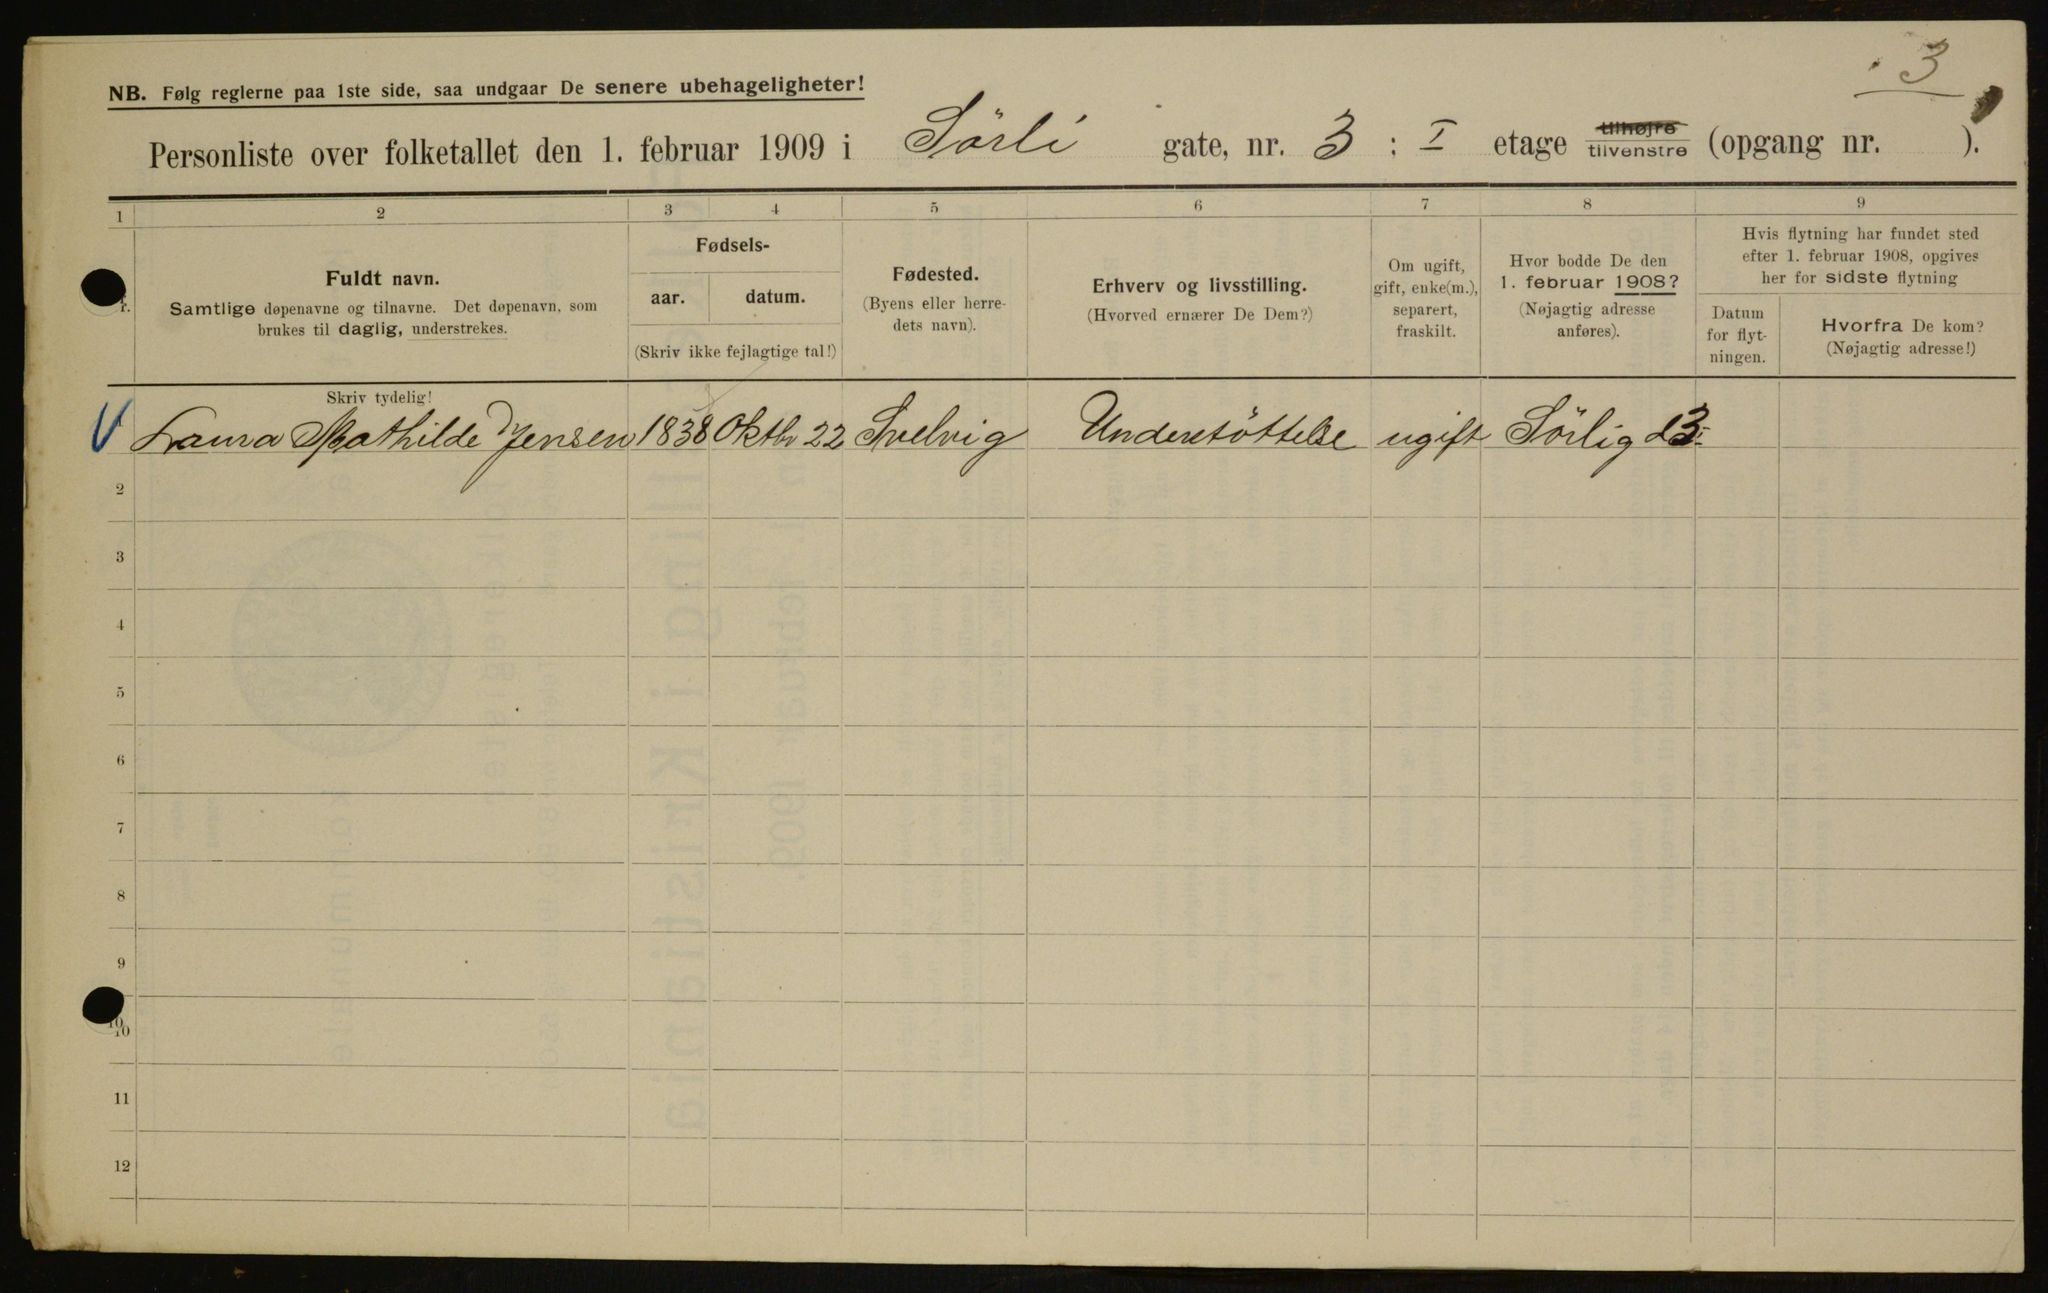 3
NB. Følg reglerne paa 1ste side, saa undgaar De senere ubehageligheter!
Personliste over folketallet den 1. februar 1909 i Sörli gate, nr. 3 : I etage tilhøjre tilvenstre (opgang nr. ).
1 2 3 4 5 6 7 8 9
Fuldt navn.
Samtlige døpenavne og tilnavne. Det døpenavn, som
brukes til daglig, understrekes.
Fødsels-
aar. datum.
(Skriv ikke fejlagtige tal!)
Fødested.
(Byens eller herre-
dets navn).
Erhverv og livsstilling.
(Hvorved ernærer De Dem?)
Om ugift,
gift, enke(m.),
separert,
fraskilt.
Hvor bodde De den
1. februar 1908?
(Nøjagtig adresse
anføres).
Hvis flytning har fundet sted
efter 1. februar 1908, opgives
her for sidste flytning
Datum
for flyt-
ningen.
Hvorfra De kom?
(Nøjagtig adresse!)
Skriv tydelig!
Laura Mathilde Jensen 1838 Oktbr 22 Svelvig Understöttelse ugift Sörlig 3
2
3
4
5
6
7
8
9
10
10
11
12